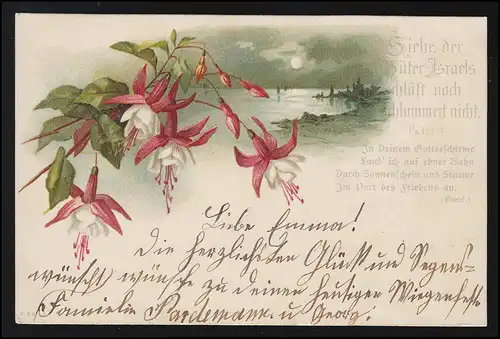 Siehe, der
Hüter Israels
schläft noch
schlummert nicht.
In Deinem Gottesschirme
Land' ich auf ebner Bahn
Durch Sonnenschein und Stürme
Im Port des Friedens an.
(Gerok.)
Liebe Emma!
Die herzlichsten Glück und Segens-
wünscht wünsche zu deinen heutigen Wiegenfeste
Familie u Georg.